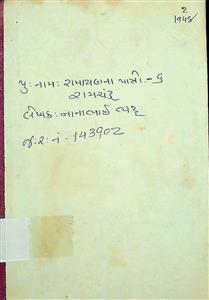 2
1948/
પુ: નામ: રામાયણના પાત્રો - ૬
રામચંદ્ર
લેખક: નાનાભાઈ ભટ્ટ
જ: ર: નં - 143902